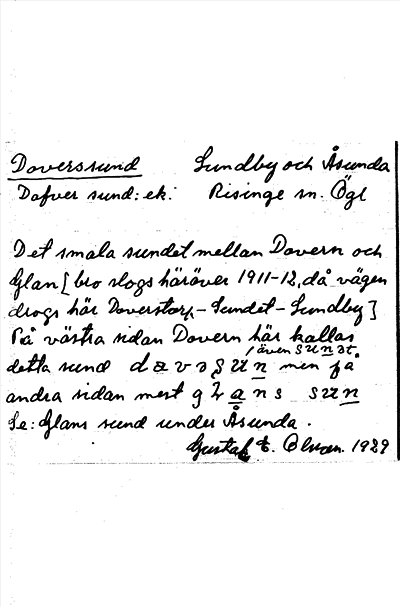 Doverssund Sundby och Åsunda
Dofver sund: ek. Risinge sn. Ögl
Det smala sundet mellan Dovern och
Glan [bro slogs häröver 1911-12, då vägen
drogs här Doverstorp-Sundet-Sundby]
På västra sidan Dovern här kallas
, även sunət
detta sund davəsun men på
andra sidan mest glans sun
Se: Glans sund under Åsunda.
Gustaf E. 1929